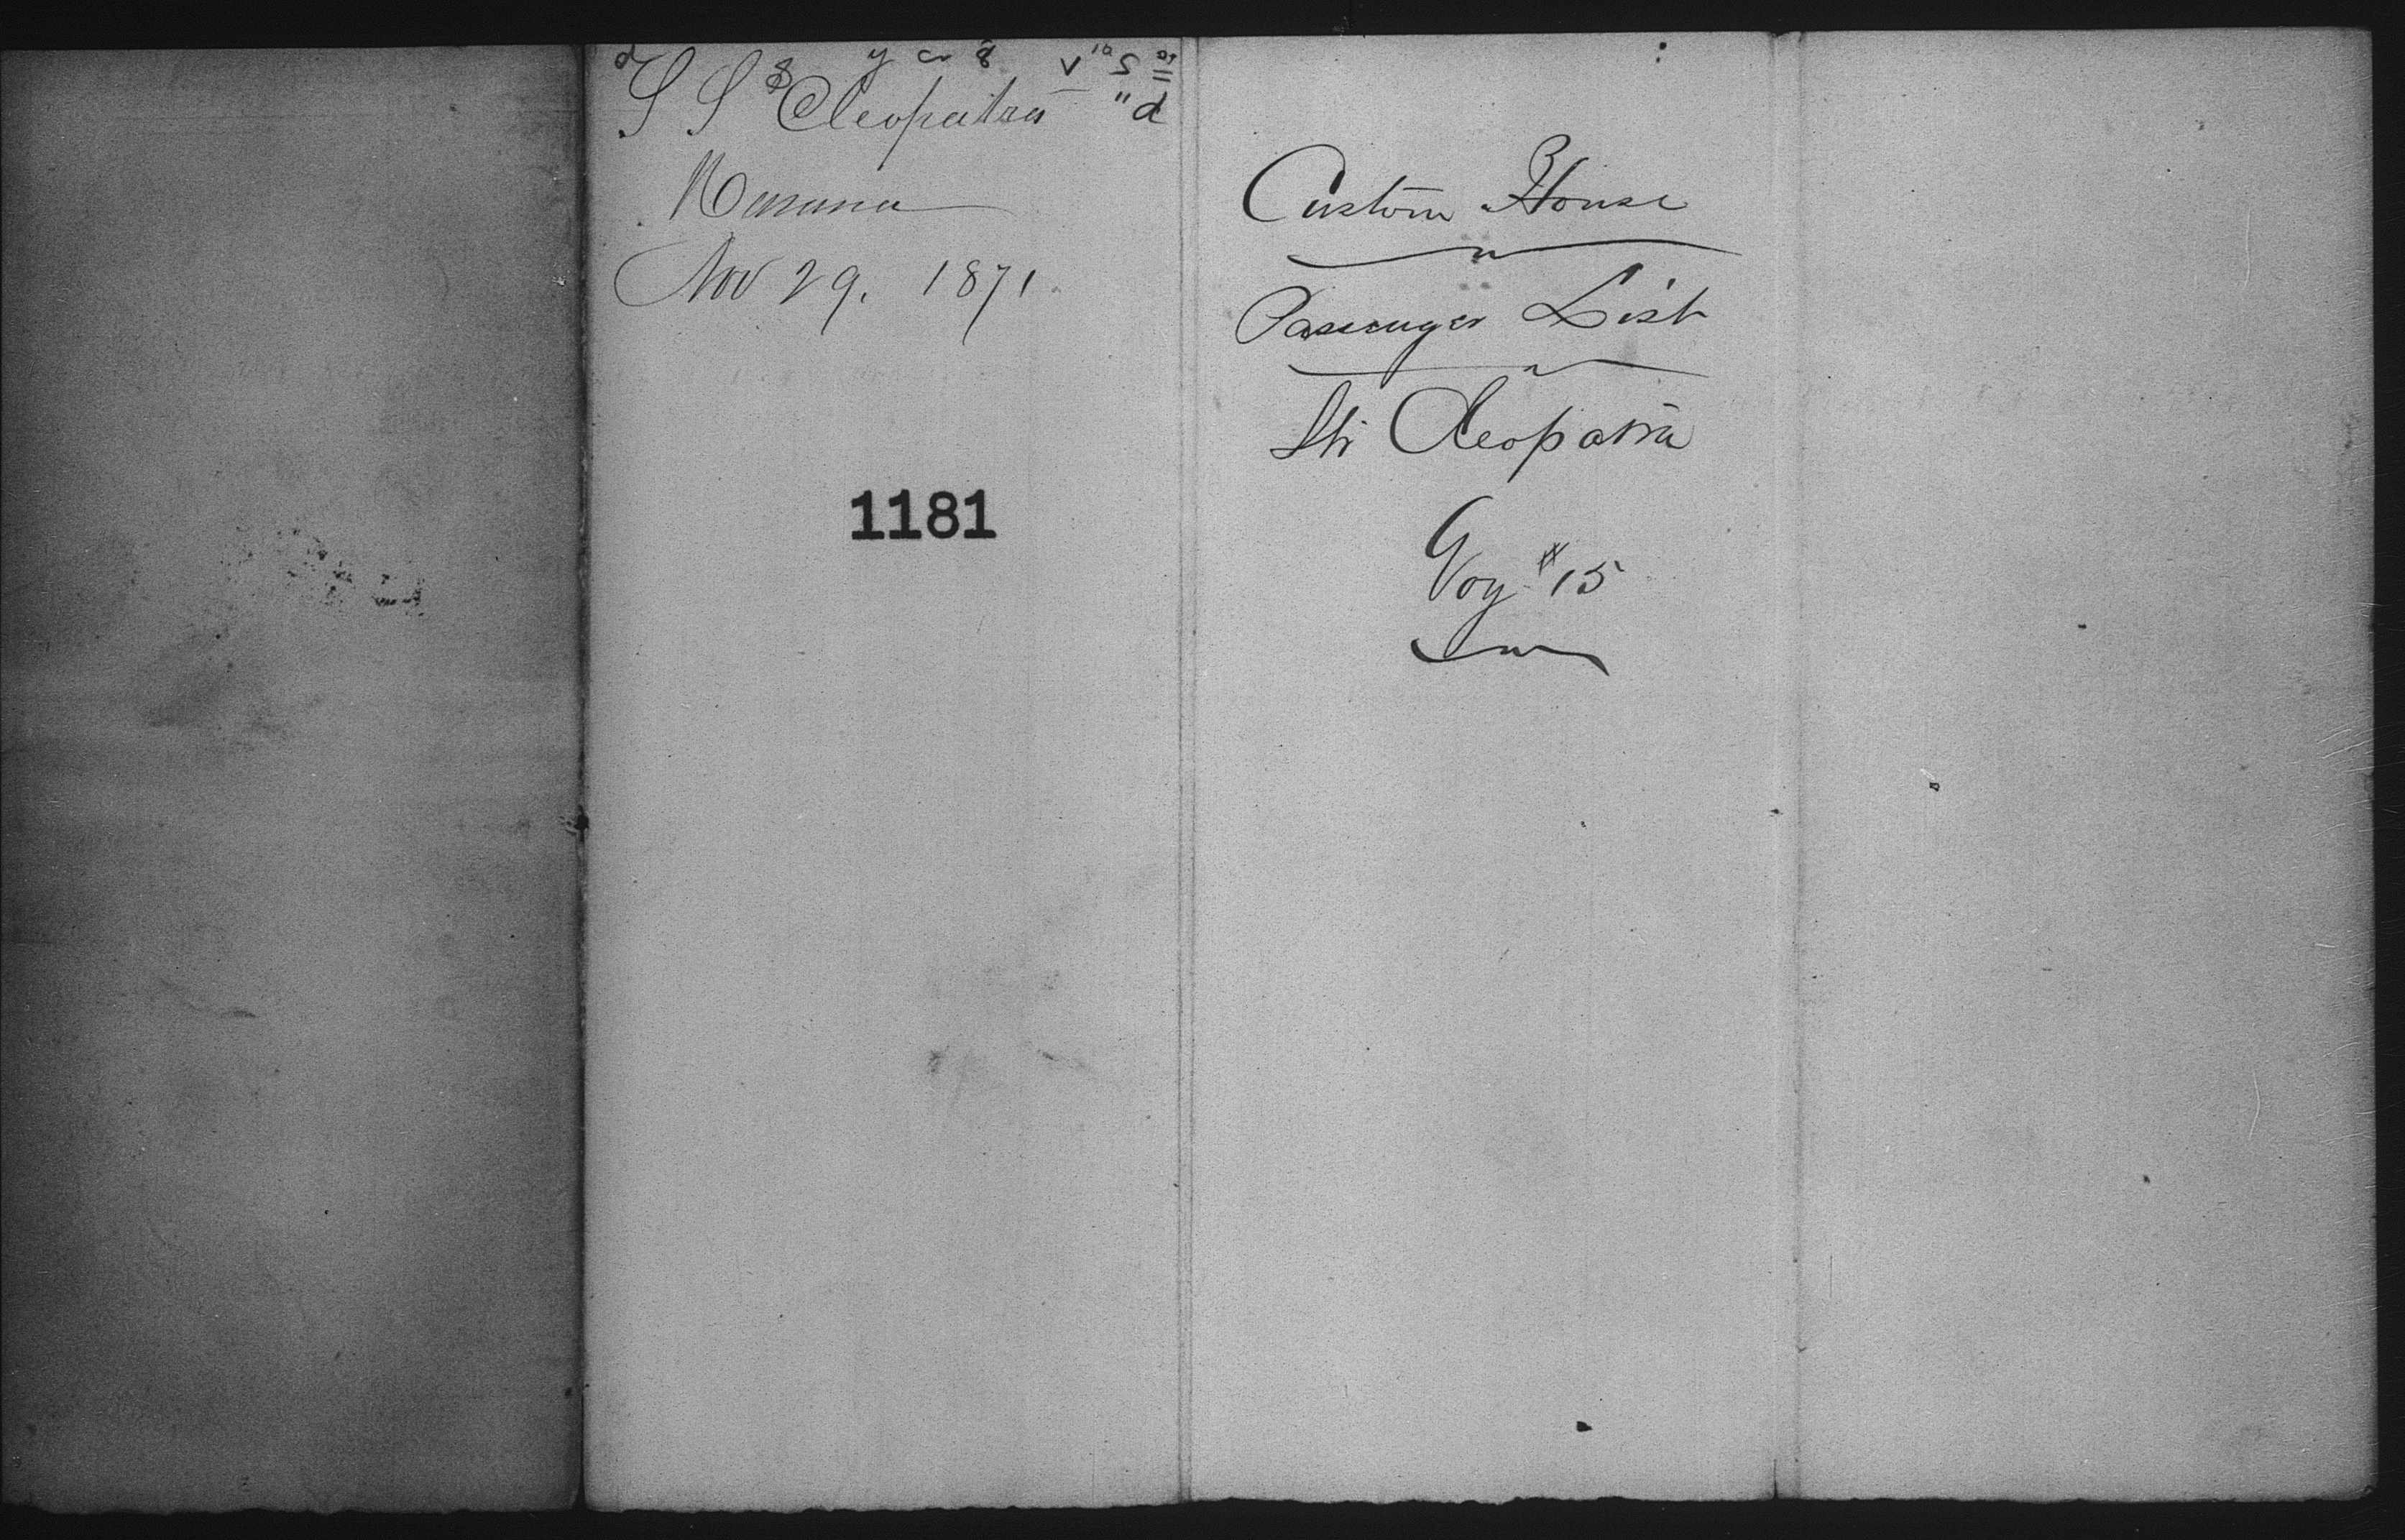 S S Cleopatra
Havana
Nov 29. 1871.
1181
Custom House
Passenger List
Str Cleopatra
Voy #15